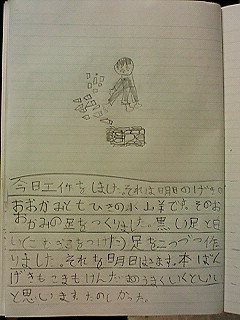 今日工作をしました。それは明日のげきの
おおかみと七ひきの小山羊です。そのお
おかみの足をつくりました。黒い足と白
い(こむぎこをつけた)足を二つづつ作
りました。それを明日はきます。本ばん
げきもこまもけんだまもうまくいくといい
と思います。たのしかった。